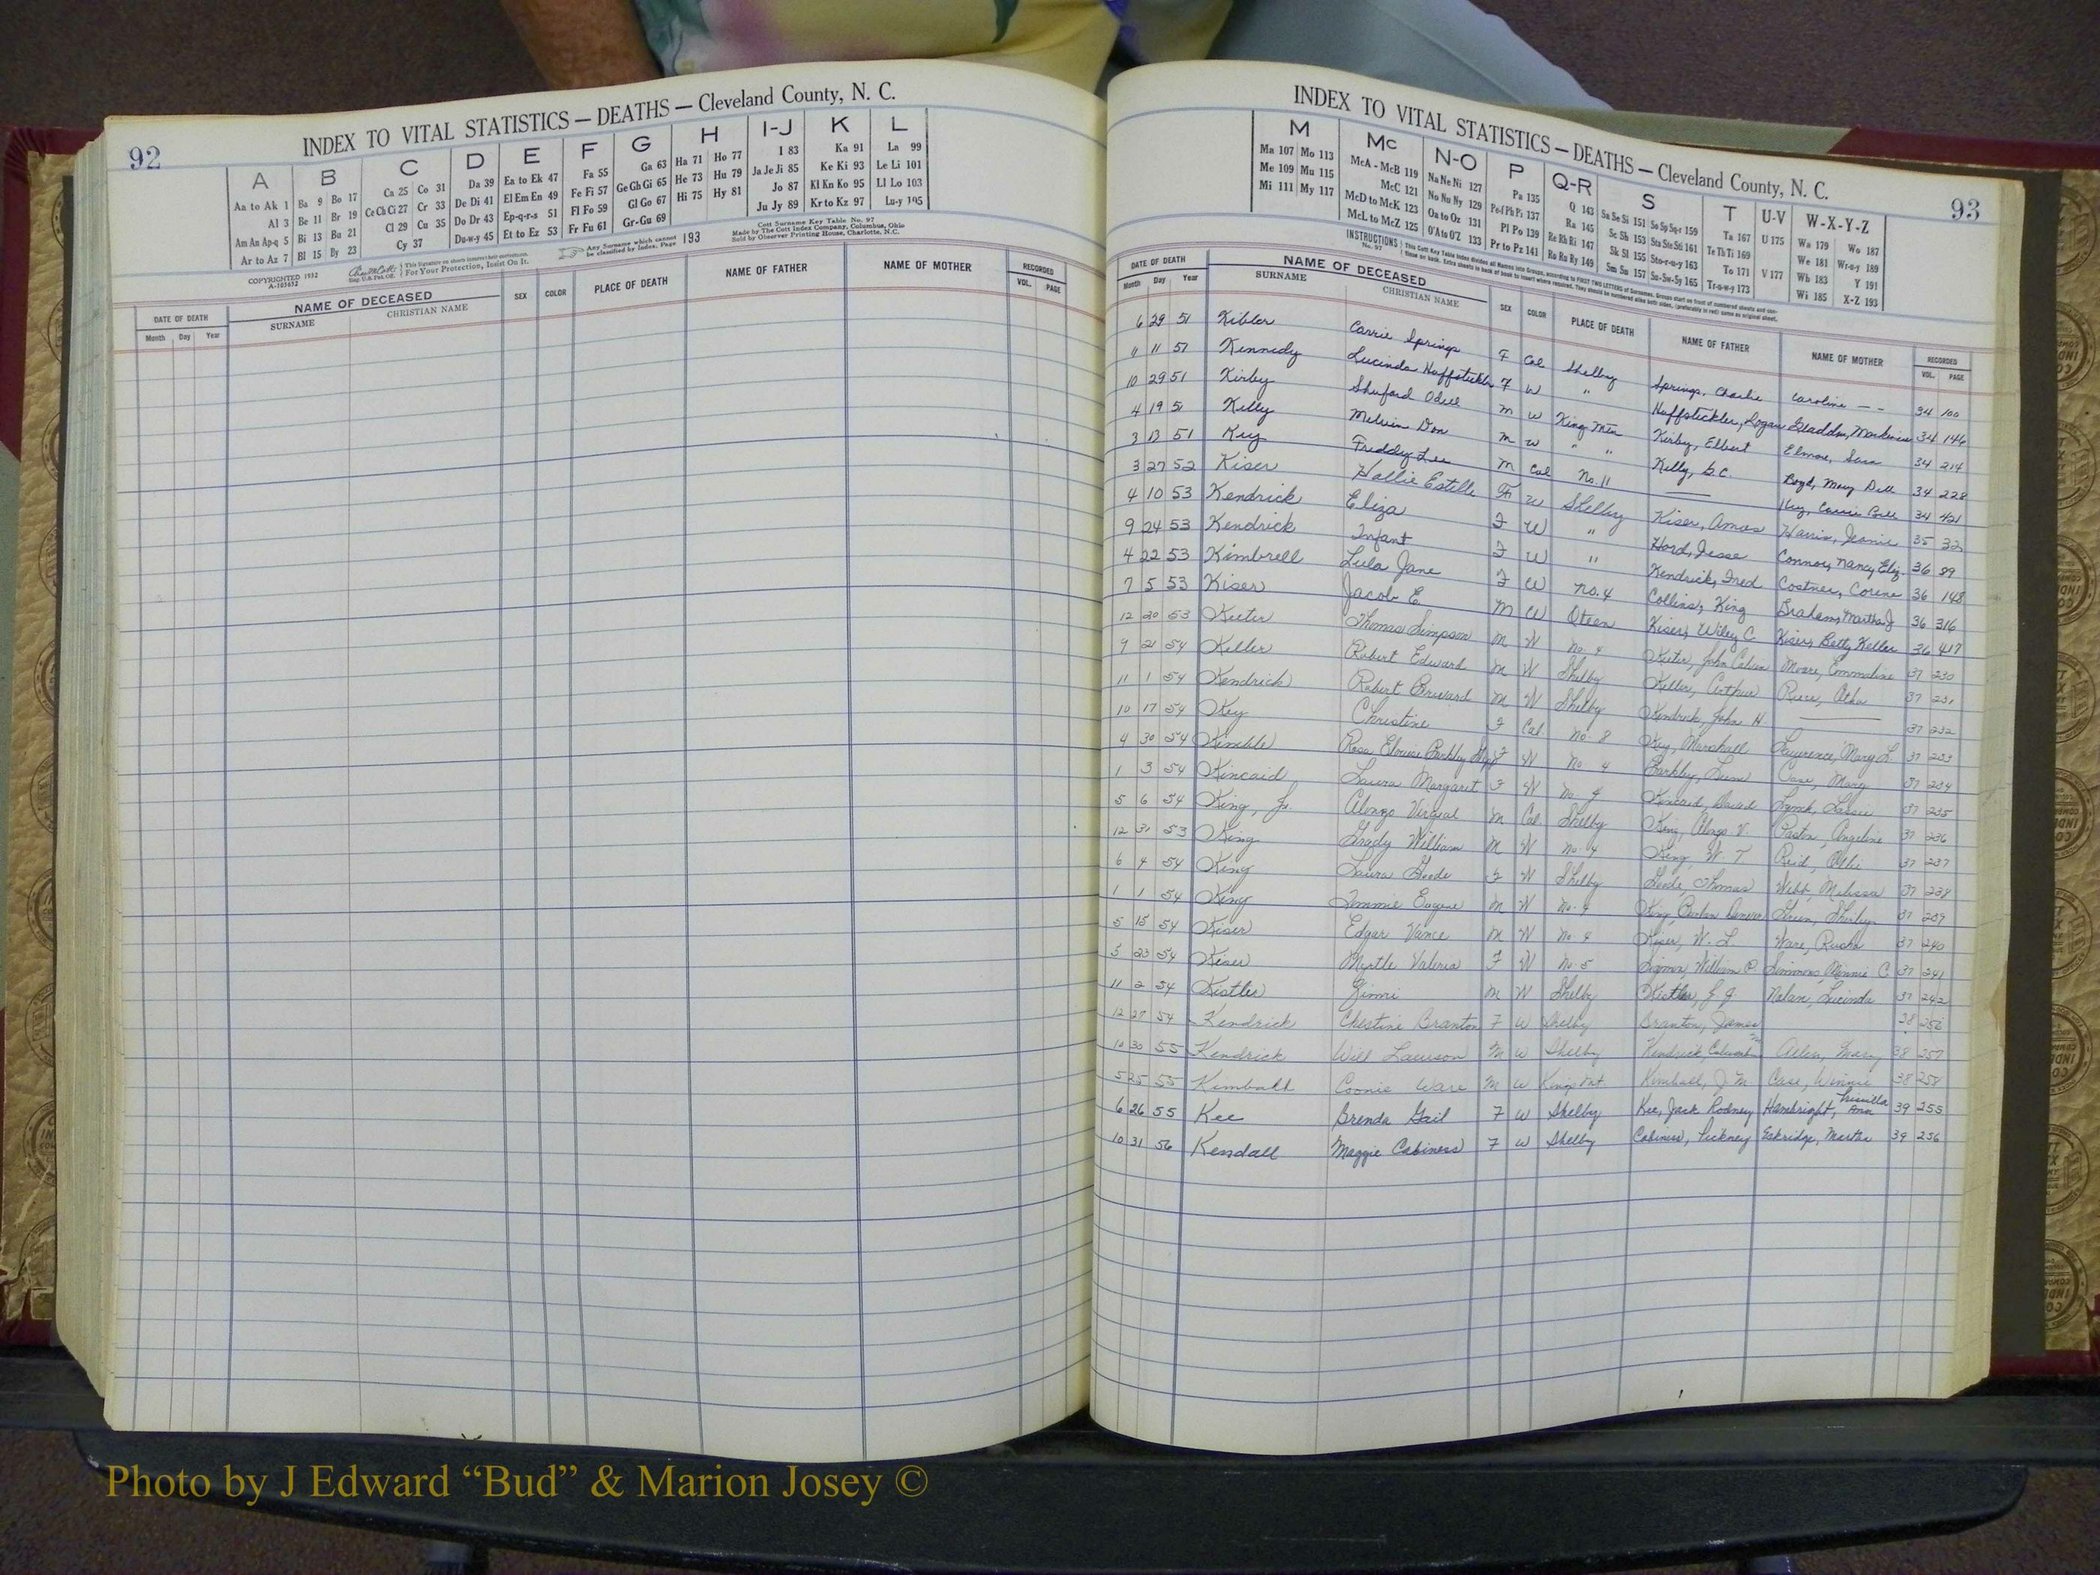 92
INDEX TO VITAL STATISTICS — DEATHS — Cleveland County, N. C.
A B C D E F G H I-J K L
Aa to Ak 1 Ba 9 Bo 17 Ca 25 Co 31 Da 39 Ea to Ek 47 Fa 55 Ga 63 Ha 71 Ho 77 I 83 Ka 91 La 99
Al 3 Be 11 Br 19 Ce Ch Ci 27 Cr 33 De Di 41 El Em En 49 Fe Fi 57 Ge Gh Gi 65 He 73 Hu 79 Ja Je Ji 85 Ke Ki 93 Le Li 101
Am An Ap-q 5 Bi 13 Bu 21 Cl 29 Cu 35 Do Dr 43 Ep-q-r-s 51 Fl Fo 59 Gl Go 67 Hi 75 Hy 81 Jo 87 Kl Kn Ko 95 Ll Lo 103
Ar to Az 7 Bl 15 By 23 Cy 37 Du-w-y 45 Et to Ez 53 Fr Fu 61 Gr-Gu 69 Ju Jy 89 Kr to Kz 97 Lu-y 105
COPYRIGHTED 1932
A-105652
This signature on sheets insures their correctness.
For Your Protection, Insist On It.
Any Surname which cannot be classified by Index, Page 193
Cott Surname Key Table No. 97
Made by The Cott Index Company, Columbus, Ohio
Sold by Observer Printing House, Charlotte, N.C.
DATE OF DEATH NAME OF DECEASED SEX COLOR PLACE OF DEATH NAME OF FATHER NAME OF MOTHER RECORDED
Month Day Year SURNAME CHRISTIAN NAME VOL. PAGE
INDEX TO VITAL STATISTICS — DEATHS — Cleveland County, N. C.
93
M Mc N-O P Q-R S T U-V W-X-Y-Z
Ma 107 Mo 113 McA - McB 119 Na Ne Ni 127 Pa 135 Q 143 Sa Se Si 151 So Sp Sq-r 159 Ta 167 U 175 Wa 179 Wo 187
Me 109 Mu 115 McC 121 No Nu Ny 129 Pe-f Ph Pi 137 Ra 145 Sc Sh 153 Sta Ste Sti 161 Te Th Ti 169 We 181 Wr-u-y 189
Mi 111 My 117 McD to McK 123 Oa to Oz 131 Pl Po 139 Re Rh Ri 147 Sk Sl 155 Sto-r-u-y 163 To 171 V 177 Wh 183 Y 191
McL to McZ 125 O'A to O'Z 133 Pr to Pz 141 Ro Ru Ry 149 Sm Sn 157 Su-Sw-Sy 165 Tr-u-w-y 173 Wi 185 X-Z 193
INSTRUCTIONS
No. 97
DATE OF DEATH NAME OF DECEASED SEX COLOR PLACE OF DEATH NAME OF FATHER NAME OF MOTHER RECORDED
Month Day Year SURNAME CHRISTIAN NAME VOL. PAGE
6 29 51 Kibler Carrie Springs F Col Shelby Springs, Charlie Caroline — — 34 100
11 51 Kennedy Lucinda Huffstickler F W " Huffstickler, Logan Gladden, 34 146
10 29 51 Kirby Shuford Odell M W Kings Mtn Kirby, Elbert Elmore, Sara 34 214
4 19 51 Kelly Melvin Don M W " " Kelly, Boyd, Mary Dell 34 228
3 13 51 Key Freddy Lee M Col No. 11 —— Key, Carrie Bell 34 421
3 27 52 Kiser Hallie Estelle F W Shelby Kiser, Amos Harris, Jeanie 35 32
4 10 53 Kendrick Eliza F W " Hord, Jesse Connor, Nancy Eliz. 36 89
9 24 53 Kendrick Infant F W " Kendrick, Fred Costner, Corene 36 148
4 22 53 Kimbrell Lula Jane F W No. 4 Collins, King Graham, Martha J 36 316
7 5 53 Kiser Jacob E. M W Oteen Kiser, Wiley C Kiser, Betty Keller 36 417
12 20 53 Keeter Thomas Simpson M W No. 4 Keeter, John Moore, Emmaline 37 230
9 21 54 Keller Robert Edward M W Shelby Keller, Arthur 37 231
11 1 54 Kendrick Robert Brevard M W Shelby Kendrick, John H —— 37 232
10 17 54 Key Christine F Col No. 8 Key, Marshall Lawrence, Mary L. 37 233
4 30 54 Kimble Rosa Elouise Barkley F W No. 4 Barkley, Case, Mary 37 234
1 3 54 Kincaid Laura Margaret F W No. 9 Kincaid, David 37 235
5 6 54 King, Jr. Alonzo Virgial M Col Shelby King, Alonzo V. Angeline 37 236
12 31 53 King Grady William M W No. 4 King, W. T Reid, 37 237
6 4 54 King Laura Goode F W Shelby Goode, Thomas Webb, Melissa 37 238
1 1 54 King Eugene M W No. 4 King, Green, Shirley 37 239
5 15 54 Kiser Edgar Vance M W No 4 Kiser, W. L. Ware, 37 240
5 23 54 Kiser Myrtle Valeria F W No. 5 William P Simmons, Minnie C. 37 241
11 2 54 Kistler Zimri M W Shelby Kistler, Nolan, Lucinda 37 242
12 27 54 Kendrick Chestine Branton F W Shelby Branton, James 38 256
10 30 55 Kendrick Will Lawson M W Shelby Kendrick, Allen, Mary 38 257
5 25 55 Kimball Coonie Ware M W Kings Mt. Kimball, J M Case, Winnie 38 258
6 26 55 Kee Brenda Gail F W Shelby Kee, Jack Rodney Hambright, Priscilla Ann 39 255
10 31 56 Kendall Maggie Cabiness F W Shelby Cabiness, Pickney Eskridge, Martha 39 256
Photo by J Edward “Bud” & Marion Josey ©